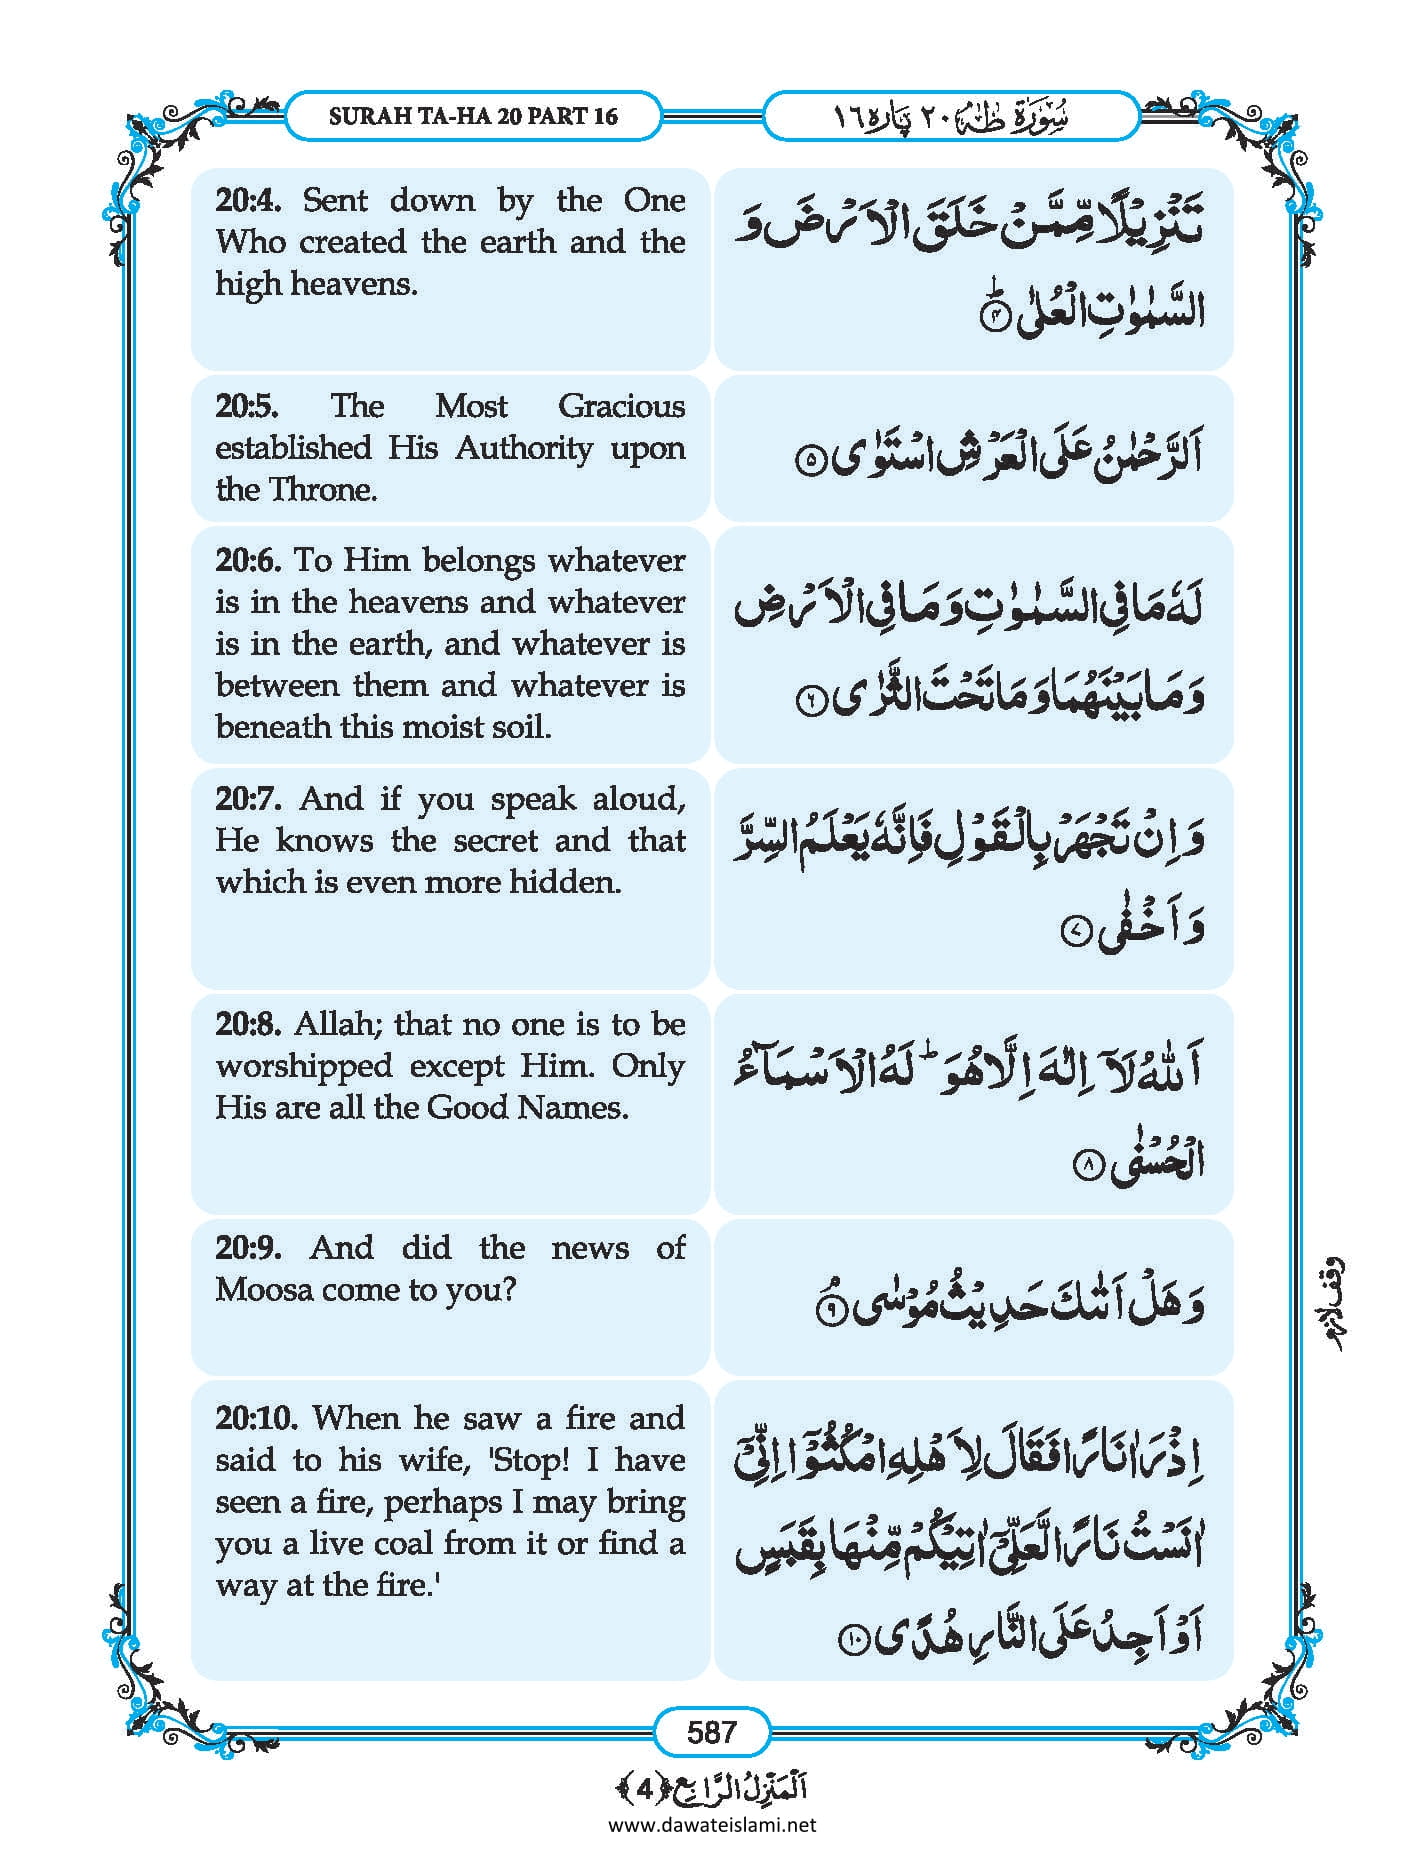 SURAH TA-HA 20 PART 16
سُوْرَۃُ طٰهٰ ٢٠ پارہ ١٦
20:4. Sent down by the One
Who created the earth and the
high heavens.
تَنْزِیْلًا مِّمَّنْ خَلَقَ الْاَرْضَ وَ
السَّمٰوٰتِ الْعُلٰی ؕ۴
20:5. The Most Gracious
established His Authority upon
the Throne.
اَلرَّحْمٰنُ عَلَی الْعَرْشِ اسْتَوٰی ۵
20:6. To Him belongs whatever
is in the heavens and whatever
is in the earth, and whatever is
between them and whatever is
beneath this moist soil.
لَهٗ مَا فِی السَّمٰوٰتِ وَ مَا فِی الْاَرْضِ
وَ مَا بَیْنَهُمَا وَ مَا تَحْتَ الثَّرٰی ۶
20:7. And if you speak aloud,
He knows the secret and that
which is even more hidden.
وَ اِنْ تَجْهَرْ بِالْقَوْلِ فَاِنَّهٗ یَعْلَمُ السِّرَّ
وَ اَخْفٰی ۷
20:8. Allah; that no one is to be
worshipped except Him. Only
His are all the Good Names.
اَللّٰهُ لَاۤ اِلٰهَ اِلَّا هُوَ ؕ لَهُ الْاَسْمَآءُ
الْحُسْنٰی ۸
20:9. And did the news of
Moosa come to you?
وَ هَلْ اَتٰىكَ حَدِیْثُ مُوْسٰی ۘ۹
وقف لازم
20:10. When he saw a fire and
said to his wife, 'Stop! I have
seen a fire, perhaps I may bring
you a live coal from it or find a
way at the fire.'
اِذْ رَاٰ نَارًا فَقَالَ لِاَهْلِهِ امْكُثُوْۤا اِنِّیْۤ
اٰنَسْتُ نَارًا لَّعَلِّیْۤ اٰتِیْكُمْ مِّنْهَا بِقَبَسٍ
اَوْ اَجِدُ عَلَی النَّارِ هُدًی ۱۰
587
اَلْمَنْزِلُ الرَّابِع ﴿4﴾
www.dawateislami.net